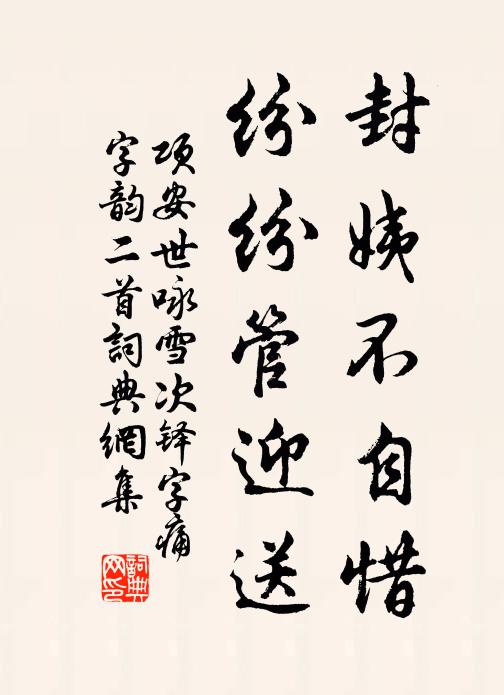 封姨不自惜
纷纷管迎送
项安世咏雪次铎字痛
字韵二首詞典網集
詞典
网印